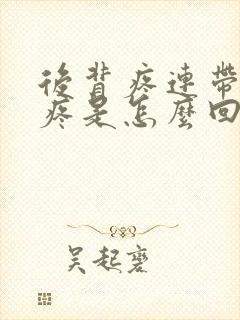 後背疼連帶
疼是怎麼回
吴起蹇